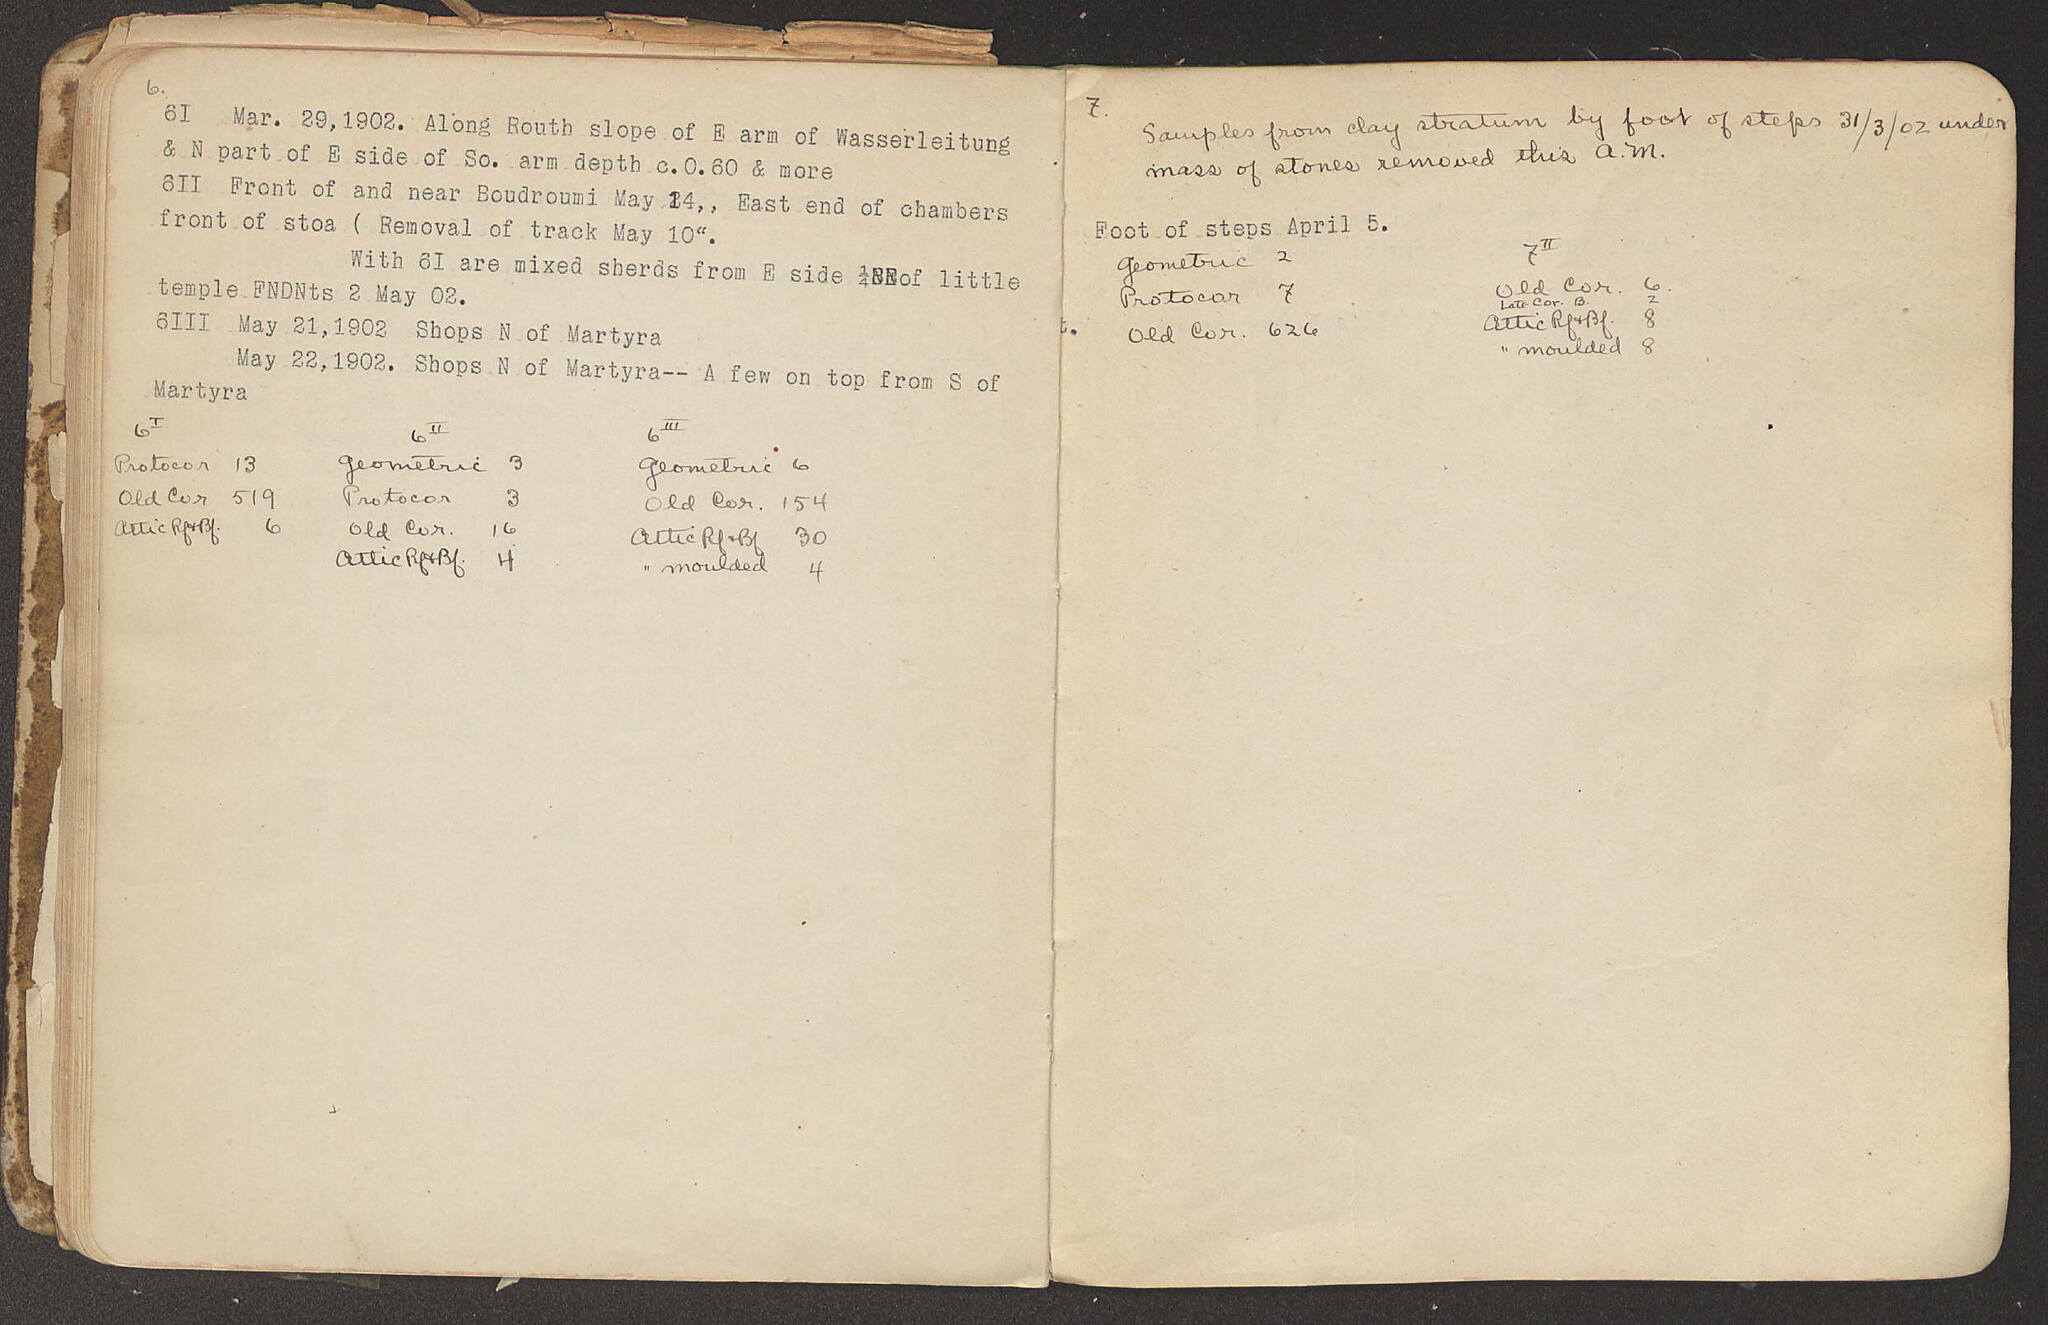 6.
6I Mar. 29,1902. Along Routh slope of E arm of Wasserleitung
& N part of E side of So. arm depth c.0.60 & more
6II Front of and near Boudroumi May 14,, East end of chambers
front of stoa ( Removal of track May 10".
With 6I are mixed sherds from E side of little
temple FNDNts 2 May 02.
6III May 21,1902 Shops N of Martyra
May 22,1902. Shops N of Martyra-- A few on top from S of
Martyra
6I 6II 6III
Protocor 13 Geometric 3 Geometric 6
Old Cor 519 Protocor 3 Old Cor. 154
Attic Rf+Bf. 6 Old Cor. 16 Attic Rf+Bf 30
Attic Rf+Bf. 4 " moulded 4
7.
Samples from clay stratum by foot of steps 31/3/02 under
mass of stones removed this A.M.
Foot of steps April 5.
7II
Geometric 2
Protocor 7 Old Cor. 6.
Late Cor. B. 2
t. Old Cor. 626 Attic Rf+Bf. 8
" moulded 8